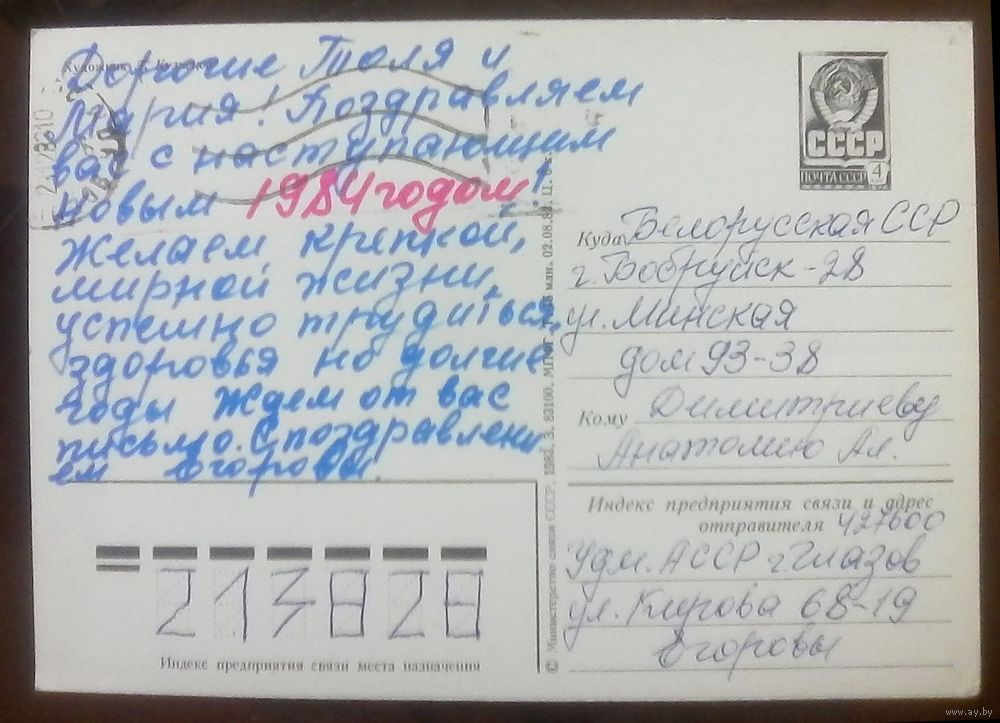 Художник
Дорогие Толя и
Мария! Поздравляем
вас с наступающим
новым 1984 годом!
Желаем крепкой,
мирной жизни,
успешно трудиться,
здоровья на долгие
годы Ждем от вас
письмо. С поздравлени
ем Егоровы.
СССР
ПОЧТА СССР 4
Куда Белорусская ССР
г. Бобруйск-28
ул. Минская
дом 93-38
Кому Димитриеву
Анатолию Ал.
Индекс предприятия связи и адрес
отправителя 427600
Удм. АССР г. Глазов
ул. Кирова 68-19
Егоровы
213828
Индекс предприятия связи места назначения
© Министерство связи СССР, 1983, З. 83100, 02.08.83,
www.ay.by